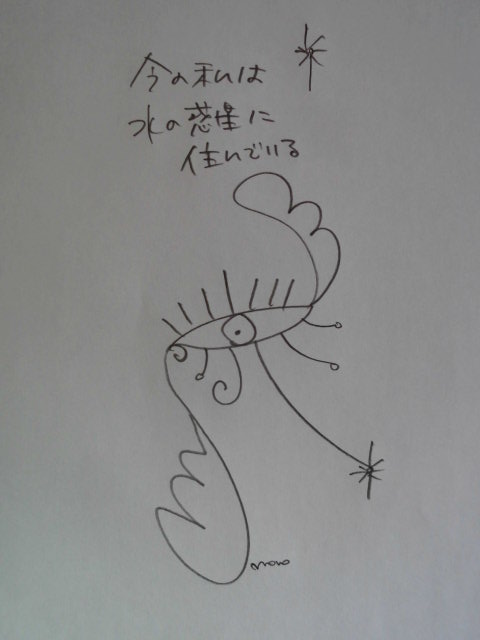 今の私は
水の惑星に
住んでいる
momo